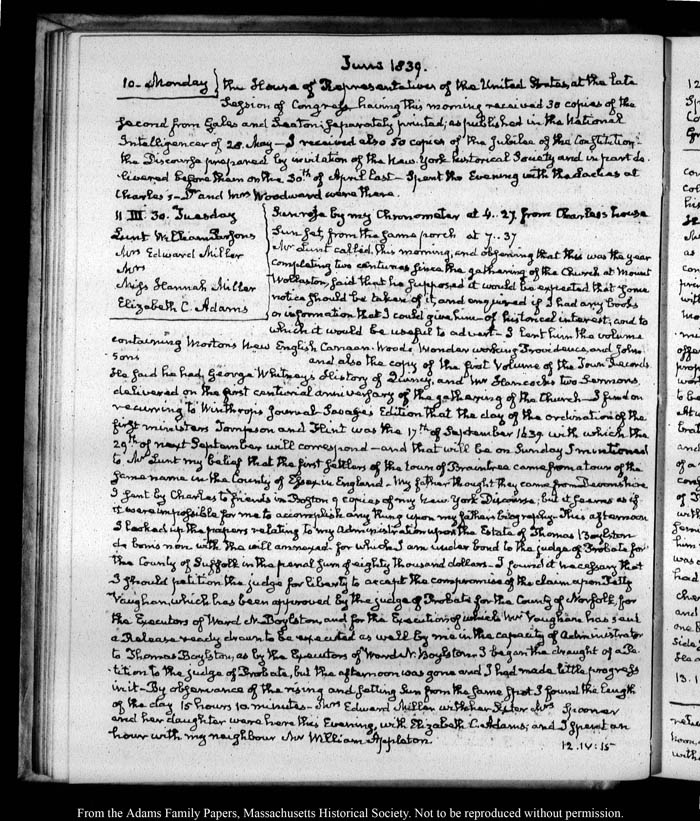 June 1839.
10. Monday } the House of Representatives of the United States, at the late
Session of Congress having this morning received 30 copies of the
second from Gales and Seaton; separately printed; as published in the National
Intelligencer of 28. May — I received also 50 copies of the Jubilee of the Constitution
the Discourse prepared by invitation of the New York historical Society and in part de-
livered before them on the 30th of April last — Spent the Evening with the Ladies at
Charles's — Dr and Mrs Woodward were there.
11 III. 30. Tuesday
Lunt William Parsons
Mrs Edward Miller
Mrs
Miss Hannah Miller
Elizabeth C. Adams
Sun rose by my Chronometer at 4..27. from Charles's house
Sun set, from the same porch at 7..37
Mr Lunt called, this morning, and observing that this was the year
completing two centuries since the gathering of the Church at Mount
Wollaston, said that he supposed it would be expected that some
notice should be taken of it, and enquired if I had any books
or information that I could give him — of historical interest, and to
which it would be useful to advert — I lent him the volume
containing Mortons New English Canaan. Woods, Wonder working Providence, and John-
sons and also the copy of the first Volume of the Town Records
He said he had George Whitney's History of Quincy, and Mr Hancock's two Sermons,
delivered on the first centurial anniversary of the gathering of the Church — I find on
recurring to Winthrop's Journal Savage's Edition that the day of the ordination of the
first ministers Tompson and Flint was the 17th of September 1639 with which the
29th of next September will correspond — and that will be on Sunday I mentioned
to Mr Lunt my belief that the first settlers of the town of Braintree came from a town of the
same name in the County of Essex in England — My father thought they came from Devonshire.
I sent by Charles to friends in Boston 9 copies of my New York Discourse, but it seems as if
it were impossible for me to accomplish any thing upon my father's biography. This afternoon
I looked up the papers relating to my Administration upon the Estate of Thomas Boylston
de bonis non with the will annexed for which I am under bond to the judge of Probate for
the County of Suffolk in the penal sum of eighty thousand dollars — I found it necessary that
I should petition the judge for liberty to accept the compromise of the claim upon Petty
Vaughan, which has been approved by the judge of Probate for the County of Norfolk, for
the Executors of Ward N. Boylston, and for the Execution of which Mr Vaughan has sent
a Release ready drawn to be executed as well by me in the capacity of Administrator
to Thomas Boylston, as by the Executors of Ward N. Boylston. I began the draught of a Pe-
tition to the judge of Probate, but the afternoon was gone and I had made little progress
in it — By observance of the rising and setting Sun from the same spot I found the length
of the day 15 hours 10 minutes — Mrs Edward Miller with her sister Mrs Spooner
and her daughter were here this Evening, with Elizabeth C. Adams; and I spent an
hour with my neighbour Mr William Appleton.
12. IV: 15
From the Adams Family Papers, Massachusetts Historical Society. Not to be reproduced without permission.